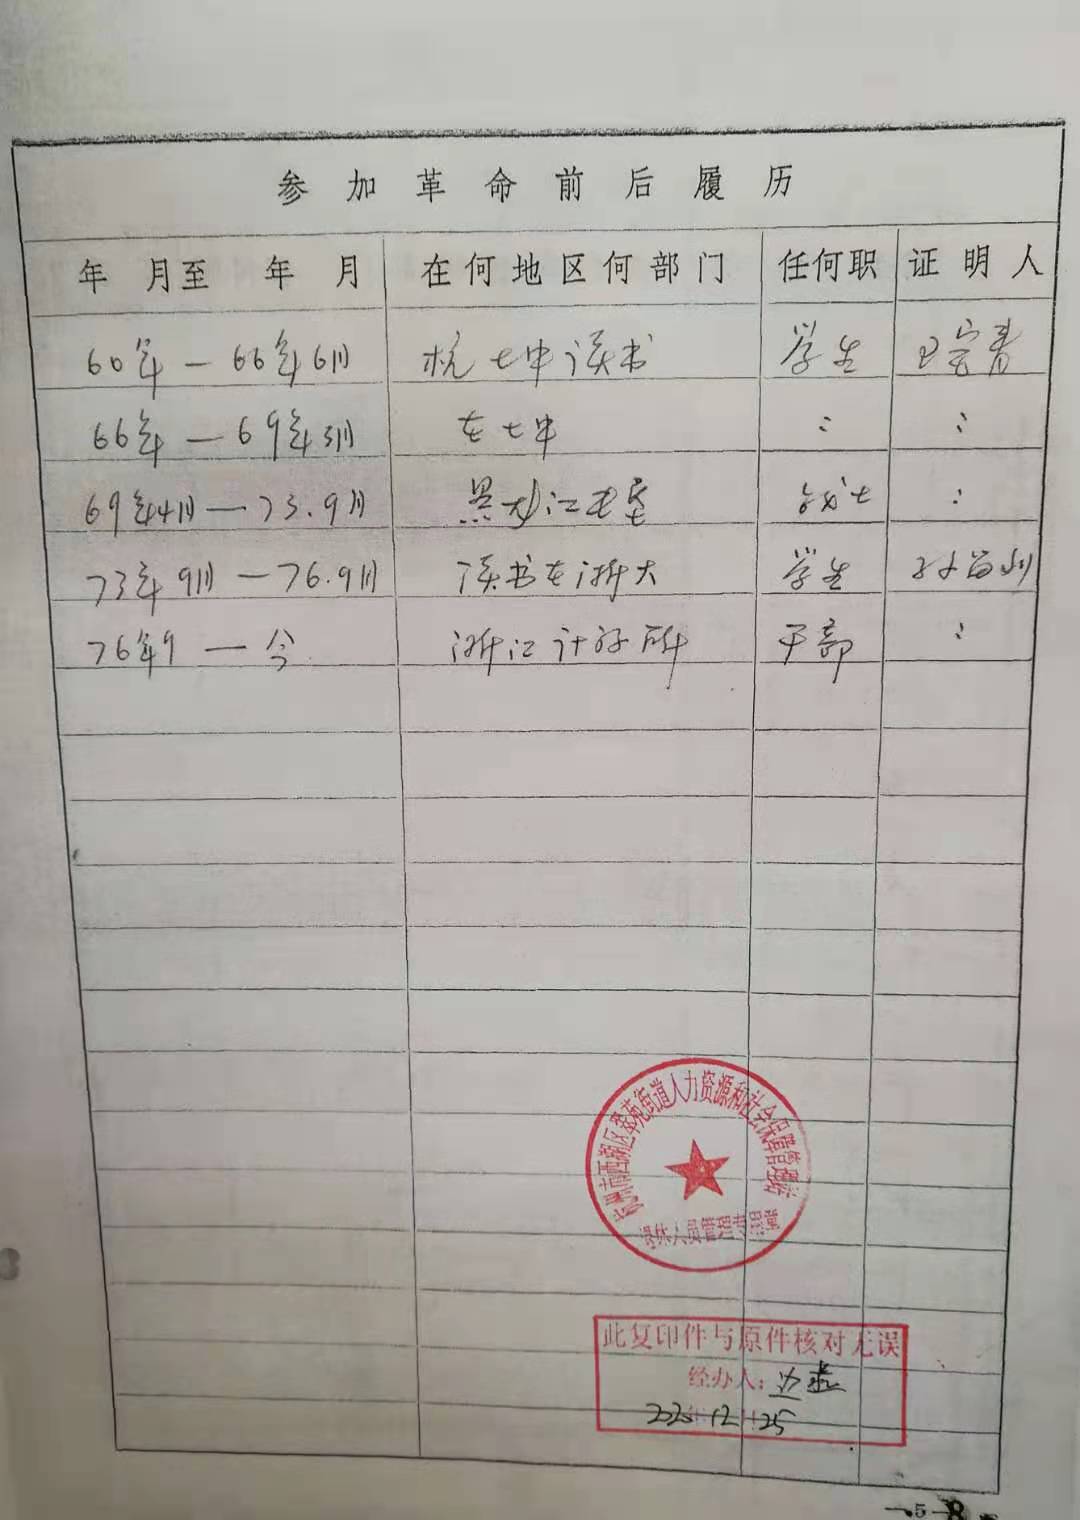 参加革命前后履历
年 月至 年 月 在何地区何部门 任何职 证明人
60年—66年6月 杭七中读书 学生 卫宗青
66年—69年3月 在七中 〃 〃
69年4月—73.9月 黑龙江屯垦 战士 〃
73年9月—76.9月 读书在浙大 学生
76年9—今 浙江计标所 干部 〃
杭州市西湖区翠苑街道人力资源和社会保障管理站
退休人员管理专用章
此复印件与原件核对无误
经办人：
2020.12.25
—5—8